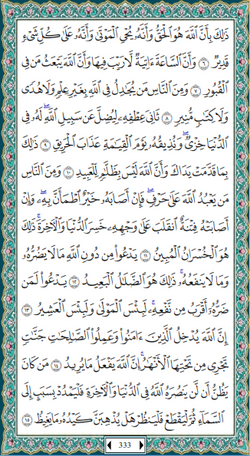 ذَٰلِكَ بِأَنَّ ٱللَّهَ هُوَ ٱلْحَقُّ وَأَنَّهُۥ يُحْىِ ٱلْمَوْتَىٰ وَأَنَّهُۥ عَلَىٰ كُلِّ شَىْءٍ
قَدِيرٌ ٦ وَأَنَّ ٱلسَّاعَةَ ءَاتِيَةٌ لَّا رَيْبَ فِيهَا وَأَنَّ ٱللَّهَ يَبْعَثُ مَن فِى
ٱلْقُبُورِ ٧ وَمِنَ ٱلنَّاسِ مَن يُجَٰدِلُ فِى ٱللَّهِ بِغَيْرِ عِلْمٍ وَلَا هُدًى
وَلَا كِتَٰبٍ مُّنِيرٍ ٨ ثَانِىَ عِطْفِهِۦ لِيُضِلَّ عَن سَبِيلِ ٱللَّهِ ۖ لَهُۥ فِى
ٱلدُّنْيَا خِزْىٌ ۖ وَنُذِيقُهُۥ يَوْمَ ٱلْقِيَٰمَةِ عَذَابَ ٱلْحَرِيقِ ٩ ذَٰلِكَ
بِمَا قَدَّمَتْ يَدَاكَ وَأَنَّ ٱللَّهَ لَيْسَ بِظَلَّٰمٍ لِّلْعَبِيدِ ١٠ وَمِنَ ٱلنَّاسِ
مَن يَعْبُدُ ٱللَّهَ عَلَىٰ حَرْفٍ ۖ فَإِنْ أَصَابَهُۥ خَيْرٌ ٱطْمَأَنَّ بِهِۦ ۖ وَإِنْ
أَصَابَتْهُ فِتْنَةٌ ٱنقَلَبَ عَلَىٰ وَجْهِهِۦ خَسِرَ ٱلدُّنْيَا وَٱلْءَاخِرَةَ ۚ ذَٰلِكَ
هُوَ ٱلْخُسْرَانُ ٱلْمُبِينُ ١١ يَدْعُوا۟ مِن دُونِ ٱللَّهِ مَا لَا يَضُرُّهُۥ
وَمَا لَا يَنفَعُهُۥ ۚ ذَٰلِكَ هُوَ ٱلضَّلَٰلُ ٱلْبَعِيدُ ١٢ يَدْعُوا۟ لَمَن
ضَرُّهُۥٓ أَقْرَبُ مِن نَّفْعِهِۦ ۚ لَبِئْسَ ٱلْمَوْلَىٰ وَلَبِئْسَ ٱلْعَشِيرُ ١٣
إِنَّ ٱللَّهَ يُدْخِلُ ٱلَّذِينَ ءَامَنُوا۟ وَعَمِلُوا۟ ٱلصَّٰلِحَٰتِ جَنَّٰتٍ
تَجْرِى مِن تَحْتِهَا ٱلْأَنْهَٰرُ ۚ إِنَّ ٱللَّهَ يَفْعَلُ مَا يُرِيدُ ١٤ مَن كَانَ
يَظُنُّ أَن لَّن يَنصُرَهُ ٱللَّهُ فِى ٱلدُّنْيَا وَٱلْءَاخِرَةِ فَلْيَمْدُدْ بِسَبَبٍ إِلَى
ٱلسَّمَآءِ ثُمَّ لْيَقْطَعْ فَلْيَنظُرْ هَلْ يُذْهِبَنَّ كَيْدُهُۥ مَا يَغِيظُ ١٥
333